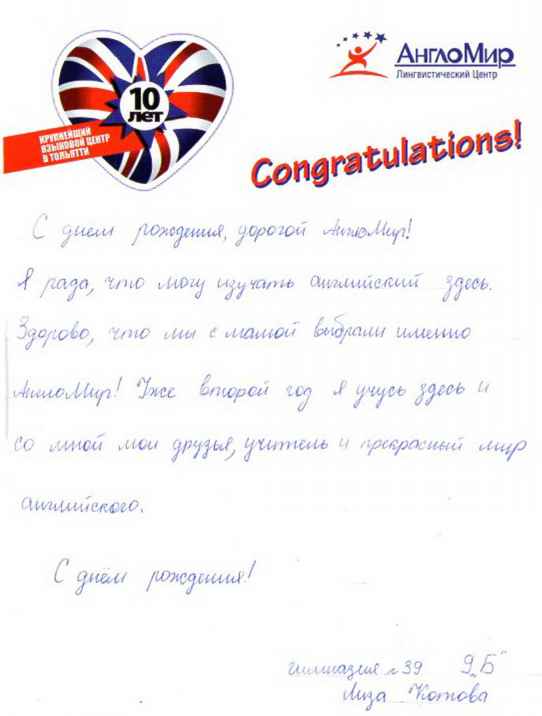 10
ЛЕТ
КРУПНЕЙШИЙ
ЯЗЫКОВОЙ ЦЕНТР
В ТОЛЬЯТТИ
АнглоМир
Лингвистический Центр
Congratulations!
С днём рождения, дорогой АнглоМир!
Я рада, что могу изучать английский здесь.
Здорово, что мы с мамой выбрали именно
АнглоМир! Уже второй год я учусь здесь и
со мной мои друзья, учитель и прекрасный мир
английского.
С днём рождения!
гимназия №39 9„Б"
Лиза Котова